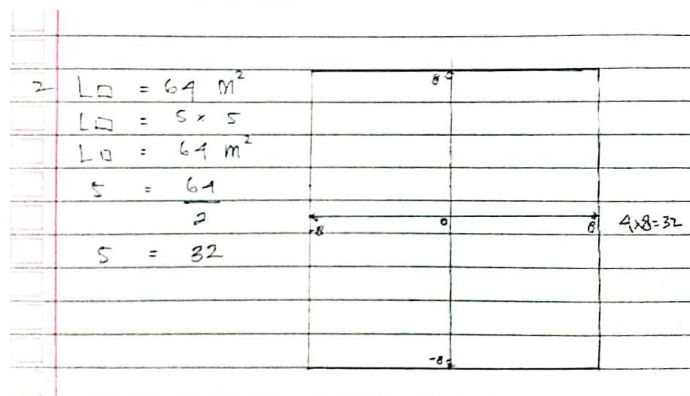 2 L□ = 64 m²
L□ = 5 × 5
L□ = 64 m²
5 = 64
2
5 = 32
8
-8 0 8 4×8=32
-8